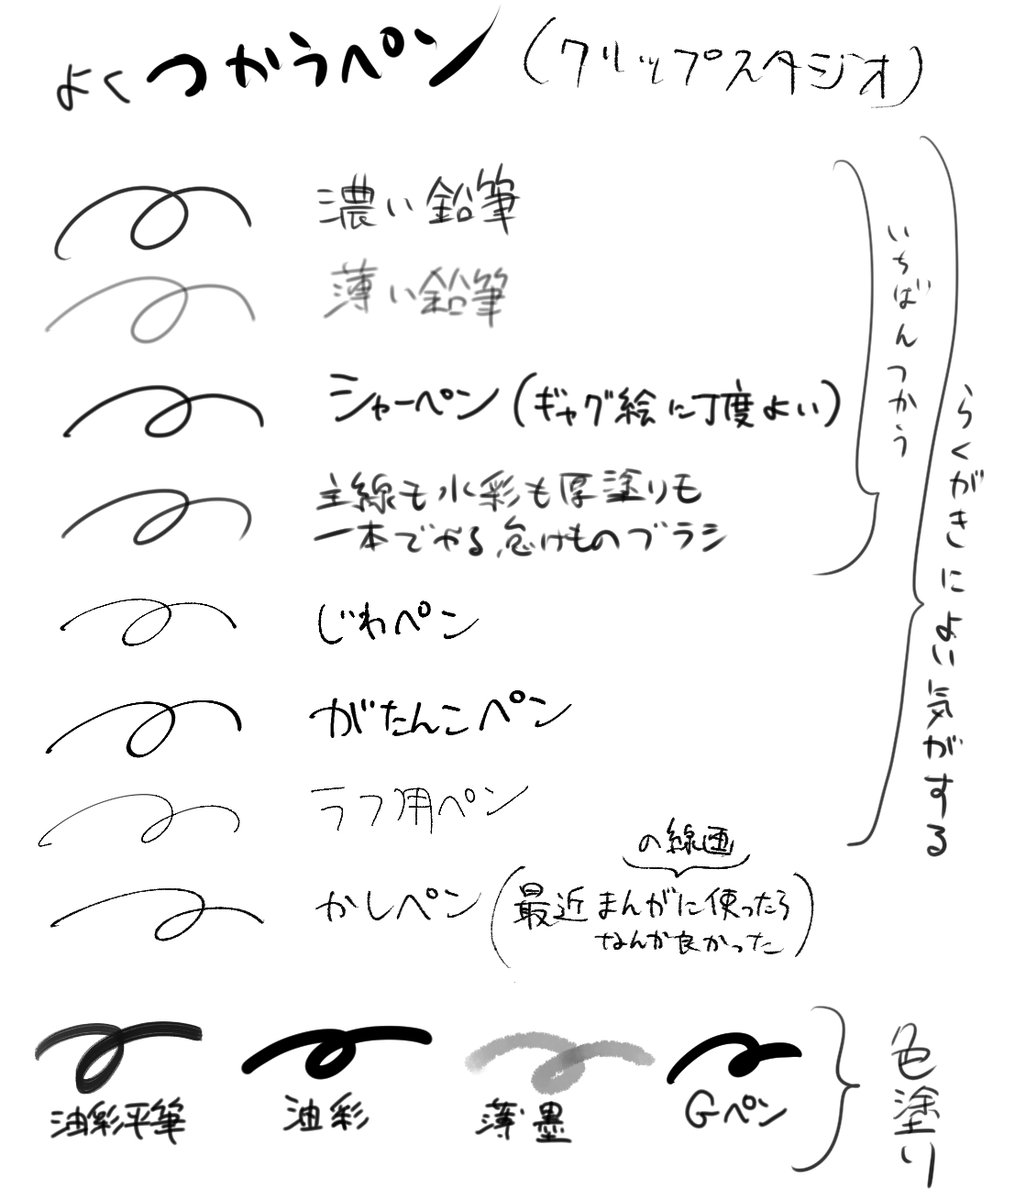 よくつかうペン（クリップスタジオ）
濃い鉛筆
薄い鉛筆
シャーペン（ギャグ絵に丁度よい）
主線も水彩も厚塗りも
一本でやる怠けものブラシ
いちばんつかう
じわペン
がたんこペン
ラフ用ペン
かしペン
の線画
（最近まんがに使ったら
なんか良かった）
らくがきによい気がする
油彩平筆
油彩
薄墨
Gペン
色塗り